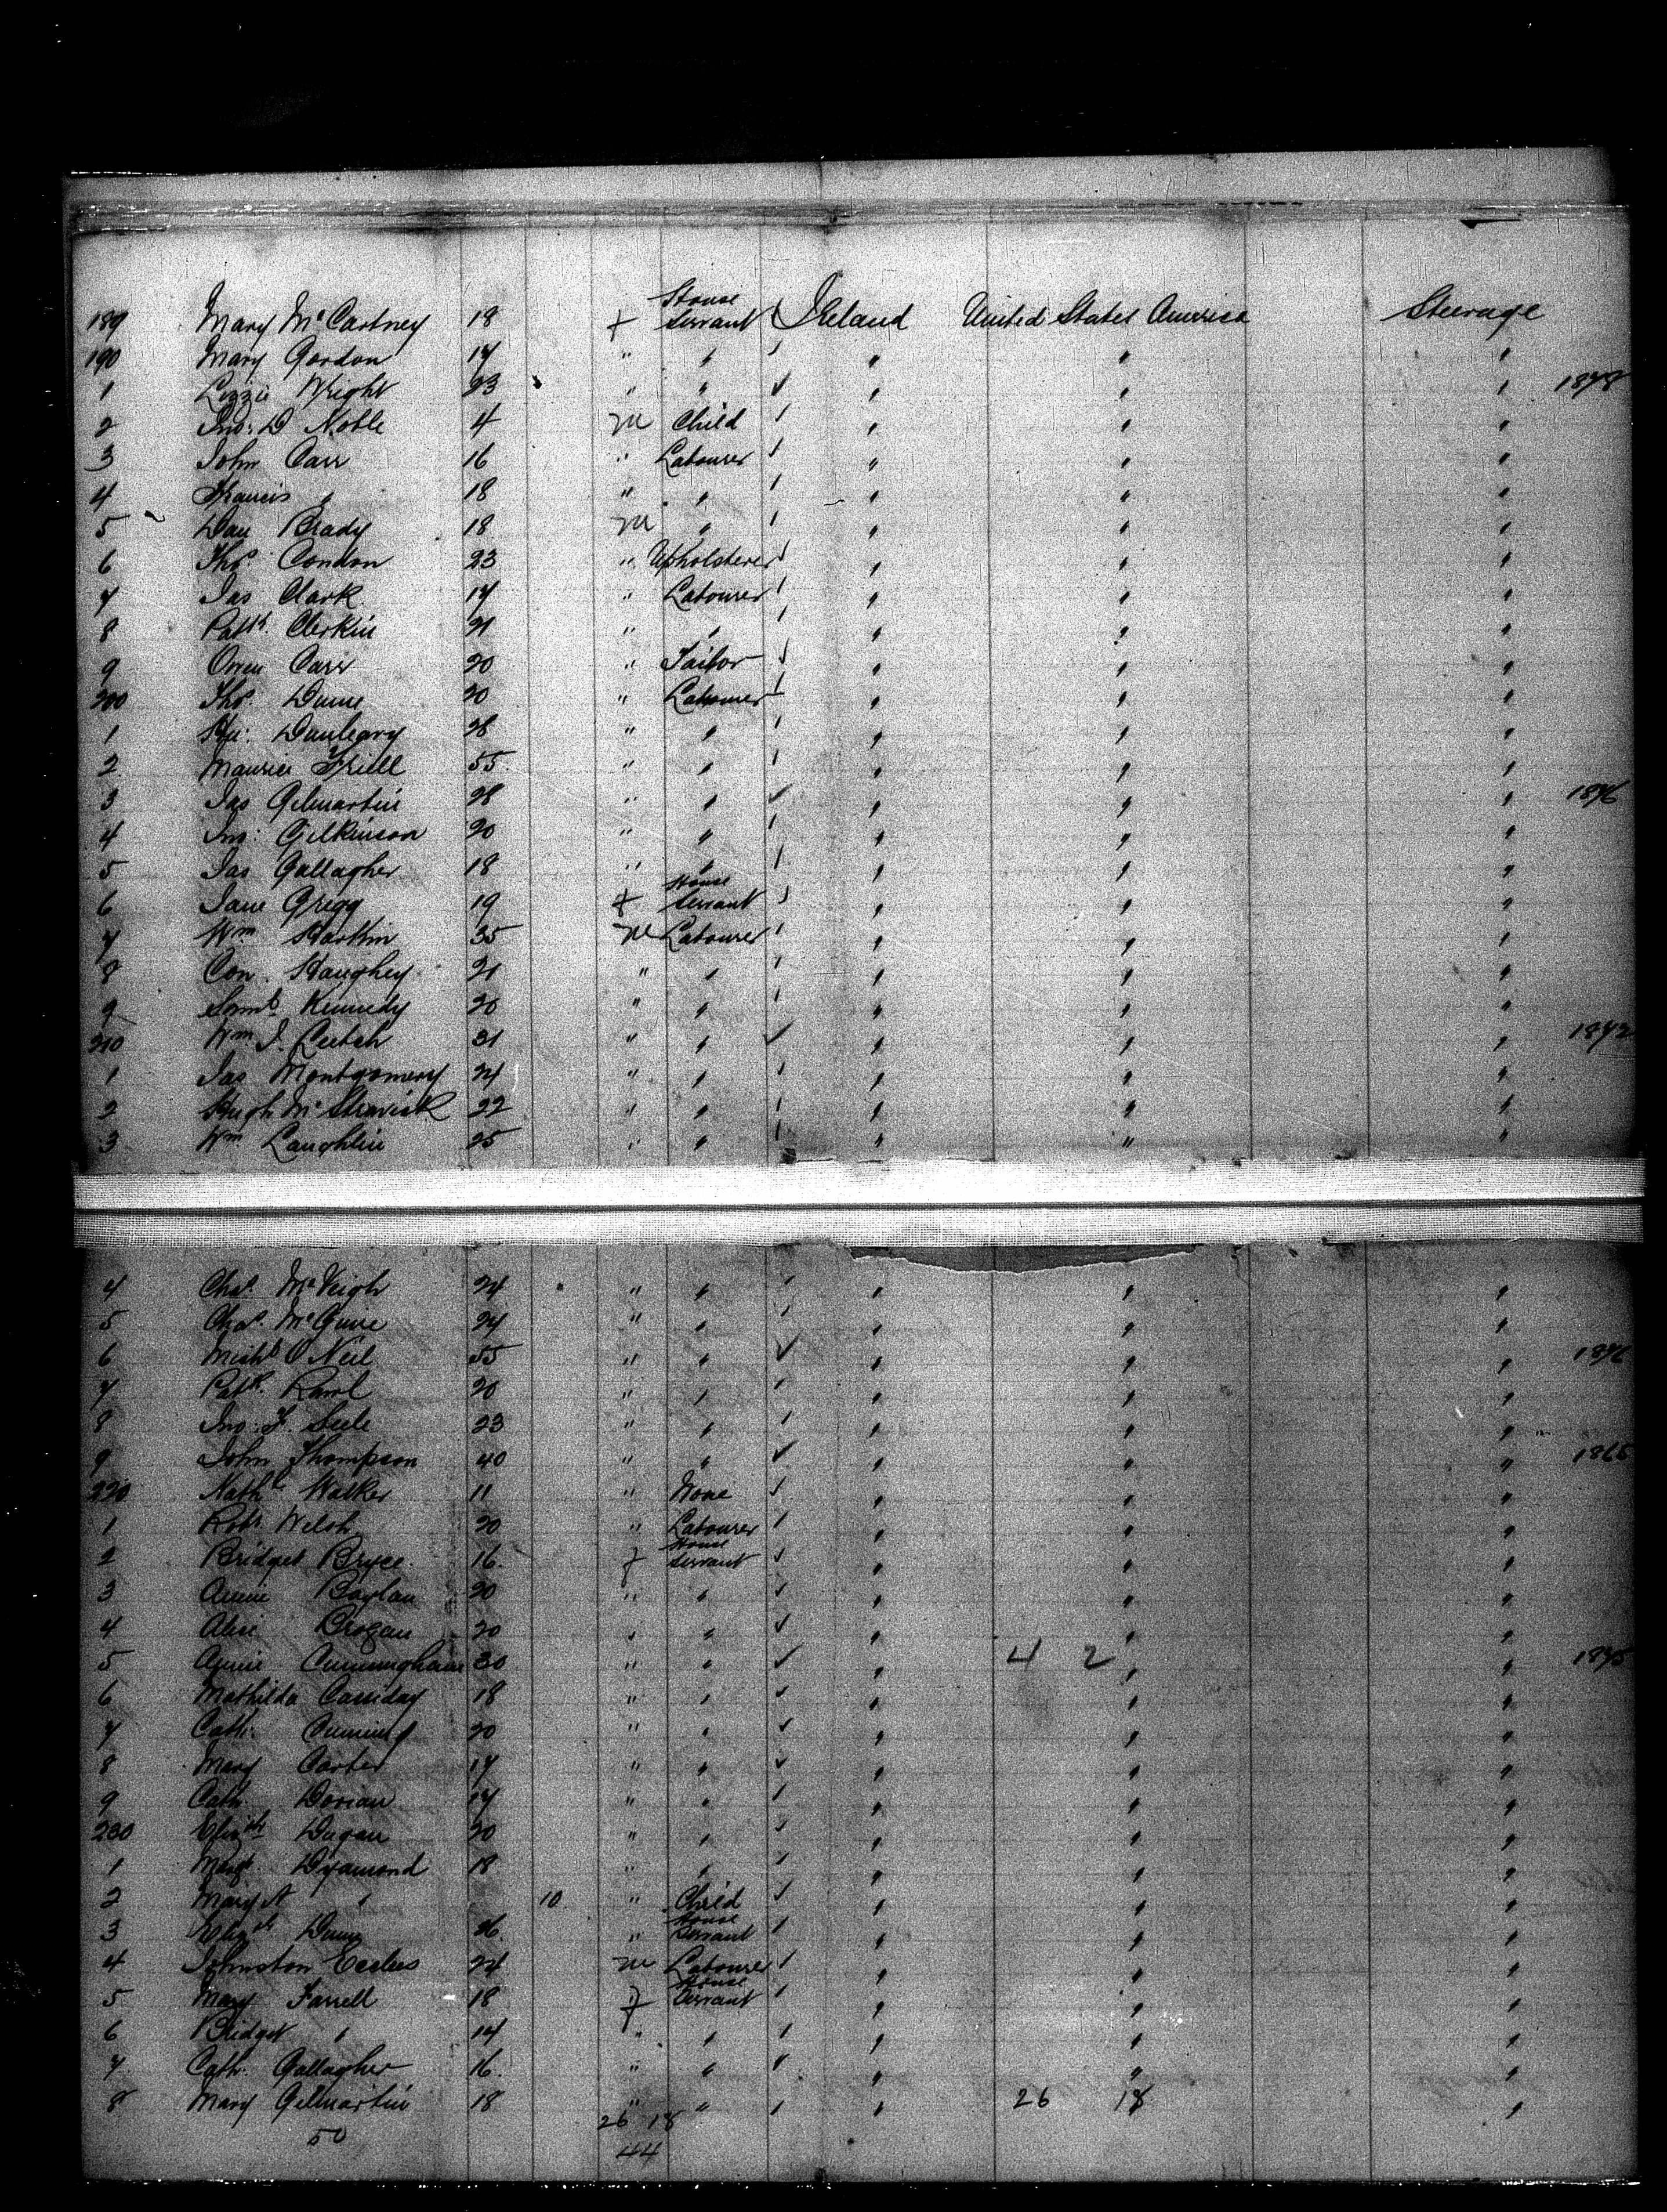 189 Mary McCartney 18 f House Servant ✓ Ireland United States America Steerage
190 Mary Gordon 17 " " " " "
1 Lizzie Wright 23 " " ✓ " " " 1878
2 Jno: D Noble 4 m Child " " "
3 John Carr 16 " Labourer " " "
4 Francis " 18 " " " " "
5 Dan Brady 18 m " " " "
6 Thos. Condon 23 " Upholsterer " " "
7 Jas Clark 17 " Labourer " " "
8 Patk. Clerkin 21 " " " " "
9 Owen Carr 20 " Tailor " " "
200 Thos. Dunne 20 " Labourer " " "
1 Hu: Dunleavy 28 " " " " "
2 Maurice Friell 55 " " " " "
3 Jas Gilmartin 28 " " ✓ " " " 1876
4 Jno: Gilkinson 20 " " " " "
5 Jas Gallagher 18 " " " " "
6 Jane Gregg 19 f House Servant " " "
7 Wm Harkin 35 m Labourer " " "
8 Con. Haughey 21 " " " " "
9 Saml Kennedy 20 " " " " "
210 Wm J. Leitch 31 " " ✓ " " " 1872
1 Jas Montgomery 24 " " " " "
2 Hugh McStravick 22 " " " " "
3 Wm Laughlin 25 " " " " "
4 Chas. McVeigh 24 " " " " "
5 Chas. McGuire 24 " " " " "
6 Michl O'Neil 55 " " ✓ " " " 1876
7 Patk. 20 " " " " "
8 Jno: F. 23 " " " " "
9 John Thompson 40 " " ✓ " " "
220 Nathl Walker 11 " None " " "
1 Robt Welsh 20 " Labourer " " "
2 Bridget Bryce 16 f House Servant " " "
3 Annie Boylan 20 " " " " "
4 Alice Brogan 20 " " " " "
5 Annie Cunningham 30 " " ✓ " 4 2 " " 1875
6 Mathilda Cassiday 18 " " " " "
7 Cath. 20 " " " " "
8 Mary Carter 17 " " " " "
9 Cath. Dorian 17 " " " " "
230 Elizth Dugan 20 " " " " "
1 Margt. Dyamond 18 " " " " "
2 Mary A " 10 " Child " " "
3 Elizth Dunn 26 " House Servant " " "
4 Johnston Eccles 24 m Labourer " " "
5 Mary Farrell 18 f House Servant " " "
6 Bridget " 14 " " " " "
7 Cath. Gallagher 16 " " " " "
8 Mary Gilmartin 18 " " " 26 18 " "
50 26 18
44